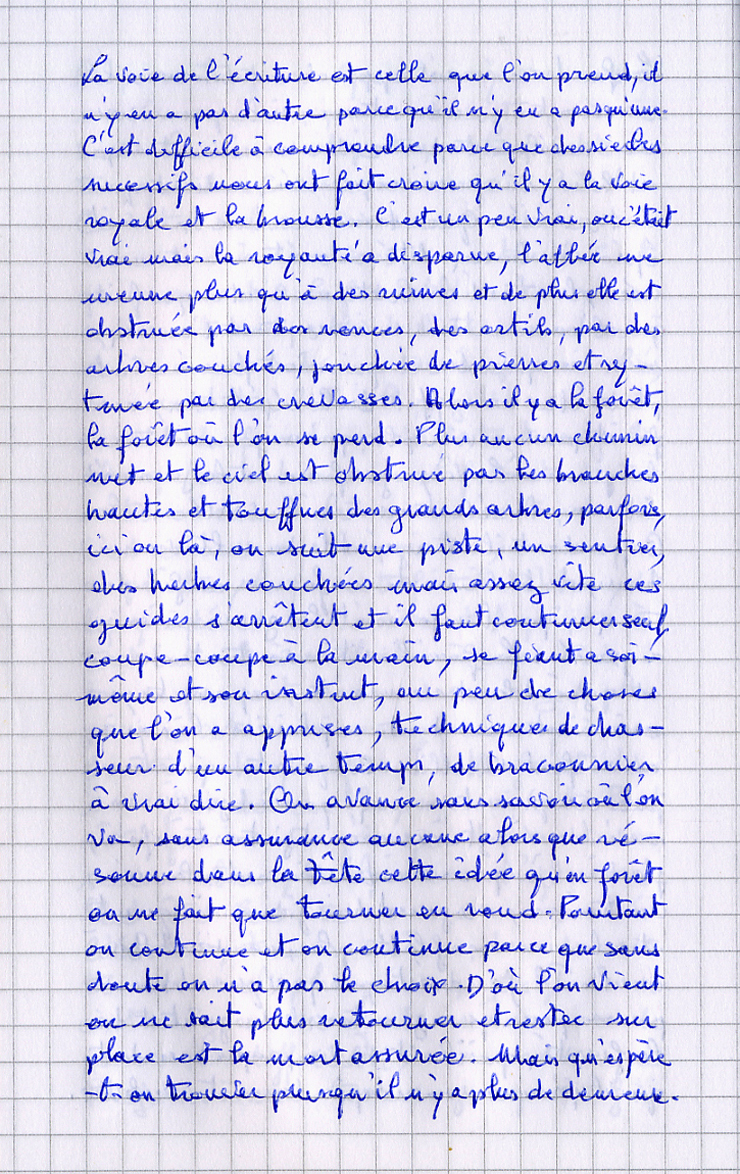 La voie de l'écriture est celle que l'on prend, il
n'y en a pas d'autre parce qu'il n'y en a pas qu'une.
C'est difficile à comprendre parce que des siècles
successifs nous ont fait croire qu'il y a la voie
royale et la brousse. C'est un peu vrai, ou c'était
vrai mais la royauté a disparue, l'allée ne
mène plus qu'à des ruines et de plus elle est
obstruée par des ronces, des ortils, par des
arbres couchés, jonchée de pierres et
par des crevasses. Alors il y a la forêt,
la forêt où l'on se perd. Plus aucun chemin
net et le ciel est obstrué par les branches
hautes et touffues des grands arbres, parfois,
ici ou là, on suit une piste, un sentier,
des herbes couchées mais assez vite ces
guides s'arrêtent et il faut continuer seul,
coupe-coupe à la main, se fiant a soi-
même et son instint, au peu de choses
que l'on a apprises, techniques de chas-
seur d'un autre temps, de braconnier
à vrai dire. On avance sans savoir où l'on
va, sans assurance aucune alors que ré-
sonne dans la tête cette idée qu'en forêt
on ne fait que tourner en rond. Pourtant
on continue et on continue parce que sans
doute on n'a pas le choix. D'où l'on vient
on ne sait plus retourner et rester sur
place est la mort assurée. Mais qu'espère
-t-on trouver puisqu'il n'y a plus de demeure.